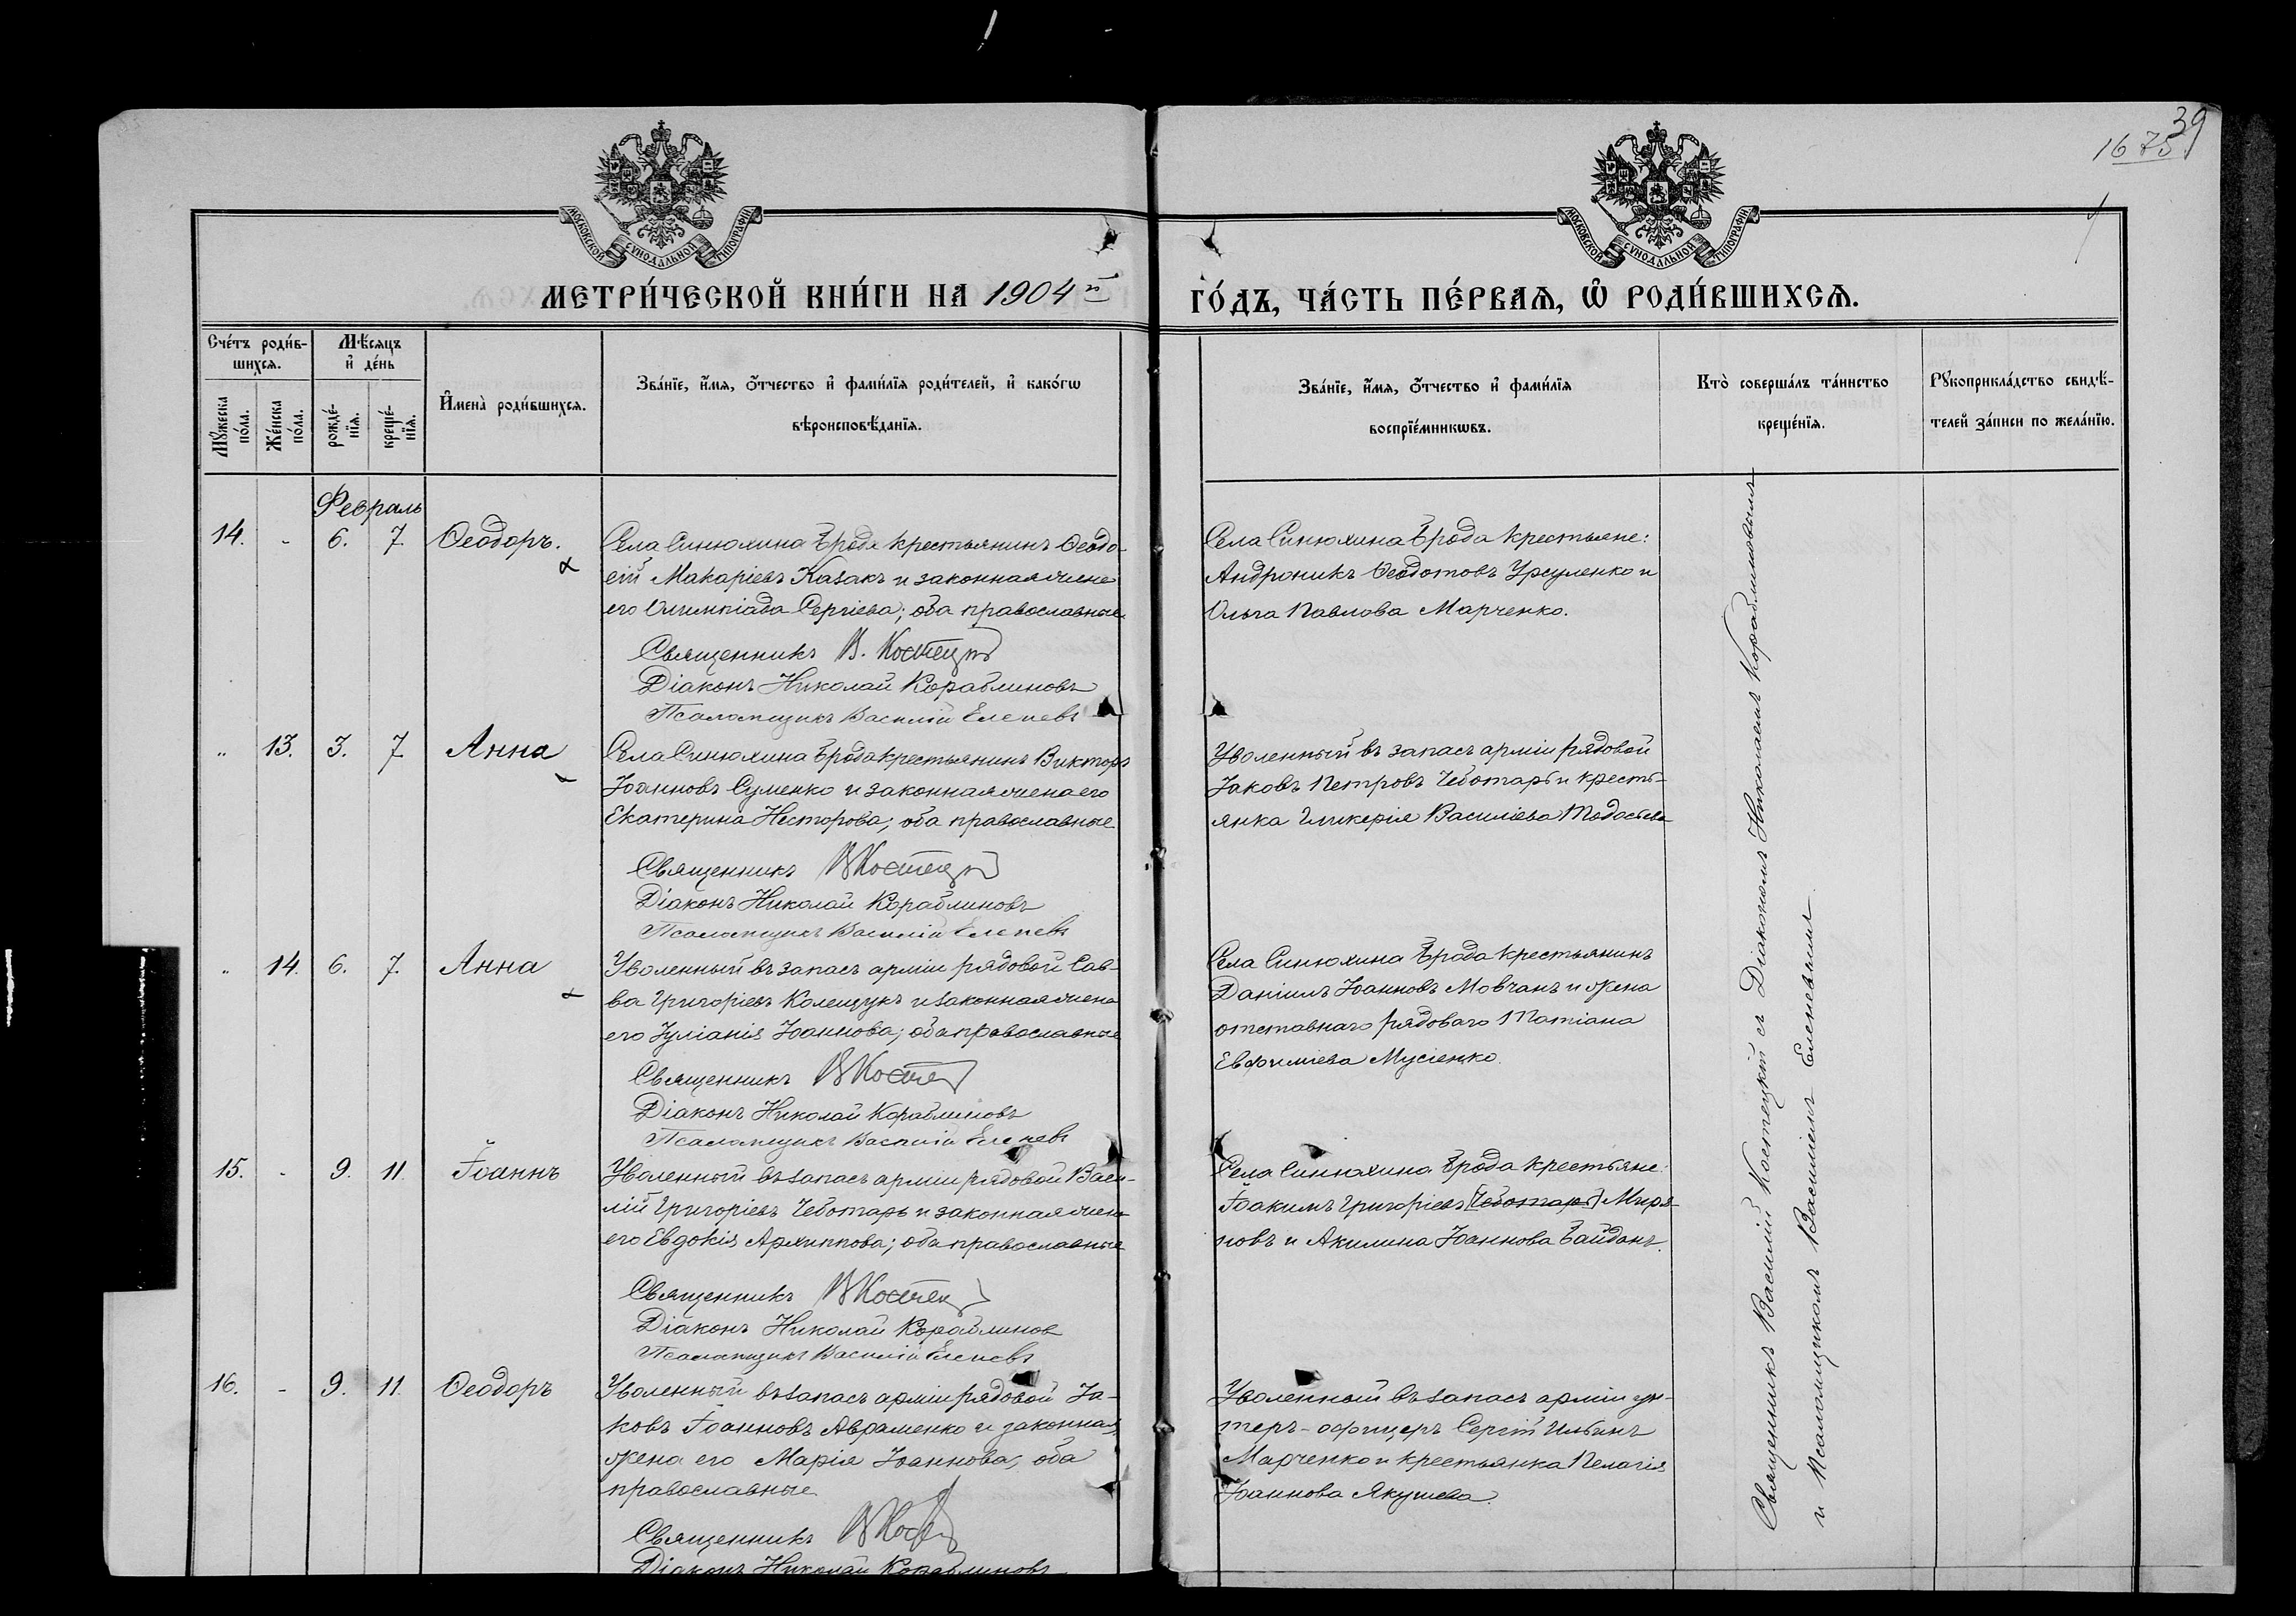 39
1675
МОСКОВСКОЙ СУНОДАЛЬНОЙ ТИПОГРАФІИ
МОСКОВСКОЙ СУНОДАЛЬНОЙ ТИПОГРАФІИ
МЕТРИ́ЧЕСКОЙ КНИ́ГИ НА 1904й
ГО́ДЪ, ЧА́СТЬ ПЕ́РВАЯ, Ѽ РОДИ́ВШИХСЯ.
Сче́тъ роди́в-
шихся.
Мѣ́сяцъ
и҆ де́нь
Мꙋ́жеска
по́ла.
Же́нска
по́ла.
рожде́-
нїѧ.
креще́-
нїѧ.
И҆мена̀ роди́вшихся.
Зва́нїе, и҆́мя, ѻ҆́тчество и҆ фами́лїя роди́телей, и҆ како́гѡ
вѣроисповѣ́данїя.
Зва́нїе, и҆́мя, ѻ҆́тчество и҆ фами́лїя
воспрїе́мникѡвъ.
Кто̀ соверша́лъ та́инство
креще́нїя.
Рꙋкоприкла́дство свидѣ́-
телей за́писи по жела́нїю.
Февраль
14. - 6. 7. Ѳеодоръ.
Села Синюхина Брода крестьянинъ Ѳеодо-
сій Макаріевъ Казакъ и законная жена
его Олимпіада Сергіева; оба православные
Священникъ В. Костецкій
Діаконъ Николай Кораблиновъ
Псаломщикъ Василій Еленевъ
Села Синюхина Брода крестьяне:
Андроникъ Ѳеодотовъ Урсуленко и
Ольга Павлова Марченко.
" 13. 3. 7. Анна
Села Синюхина Брода крестьянинъ Викторъ
Іоанновъ Суменко и законная жена его
Екатерина Несторова; оба православные
Священникъ В Костецкій
Діаконъ Николай Кораблиновъ
Псаломщикъ Василій Еленевъ
Уволенный въ запасъ арміи рядовой
Іаковъ Петровъ Чеботарь и кресть-
янка Гликерія Василіева
" 14. 6. 7. Анна
Уволенный въ запасъ арміи рядовой Сав-
ва Григоріевъ Колещукъ и законная жена
его Іуліанія Іоаннова; оба православные
Священникъ В Костецкій
Діаконъ Николай Кораблиновъ
Псаломщикъ Василій Еленевъ
Села Синюхина Брода крестьянинъ
Даніилъ Іоанновъ Мовчанъ и жена
отставнаго рядоваго Татіана
Евфиміева Мусіенко.
15. - 9. 11. Іоаннъ
Уволенный въ запасъ арміи рядовой Васи-
лій Григоріевъ Чеботарь и законная жена
его Евдокія Архиппова; оба православные
Священникъ В Костецкій
Діаконъ Николай Кораблинов
Псаломщикъ Василій Еленевъ
Села Синюхина Брода крестьяне:
Іоакимъ Григоріевъ [Чеботарь] Миро-
новъ и Акилина Іоаннова Байданъ.
16. - 9. 11. Ѳеодоръ
Уволенный въ запасъ арміи рядовой Іа-
ковъ Іоанновъ Авраменко и законная
жена его Марія Іоаннова, оба
православные
Священникъ В Костецкій
Діаконъ Николай Кораблиновъ
Уволенный въ запасъ арміи ун-
теръ-офицеръ Сергій Ильинъ
Марченко и крестьянка Пелагія
Іоаннова Якушева.
Священникъ Василій Костецкій съ Діакономъ Николаемъ Кораблиновымъ
и Псаломщикомъ Василіемъ Еленевымъ.